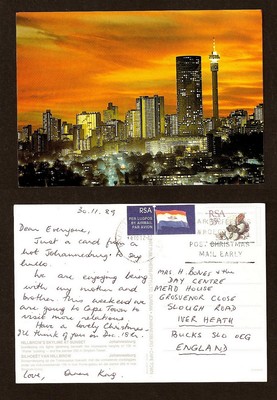 30.11.89
Dear Everyone,
Just a card from a
hot Johannesburg to say
hullo.
We are enjoying being
with my mother and
brother. This weekend we
are going to Cape Town to
visit more relations.
Have a lovely Christmas.
I'll think of you on Dec. 18th.
Love,
RSA
PER LUGPOS
BY AIRMAIL
PAR AVION
RSA
POST CHRISTMAS
MAIL EARLY
MRS H. BONES & the
DAY CENTRE
MEAD HOUSE
GROSVENOR CLOSE
SLOUGH ROAD
IVER HEATH
BUCKS SL0 0EG
ENGLAND